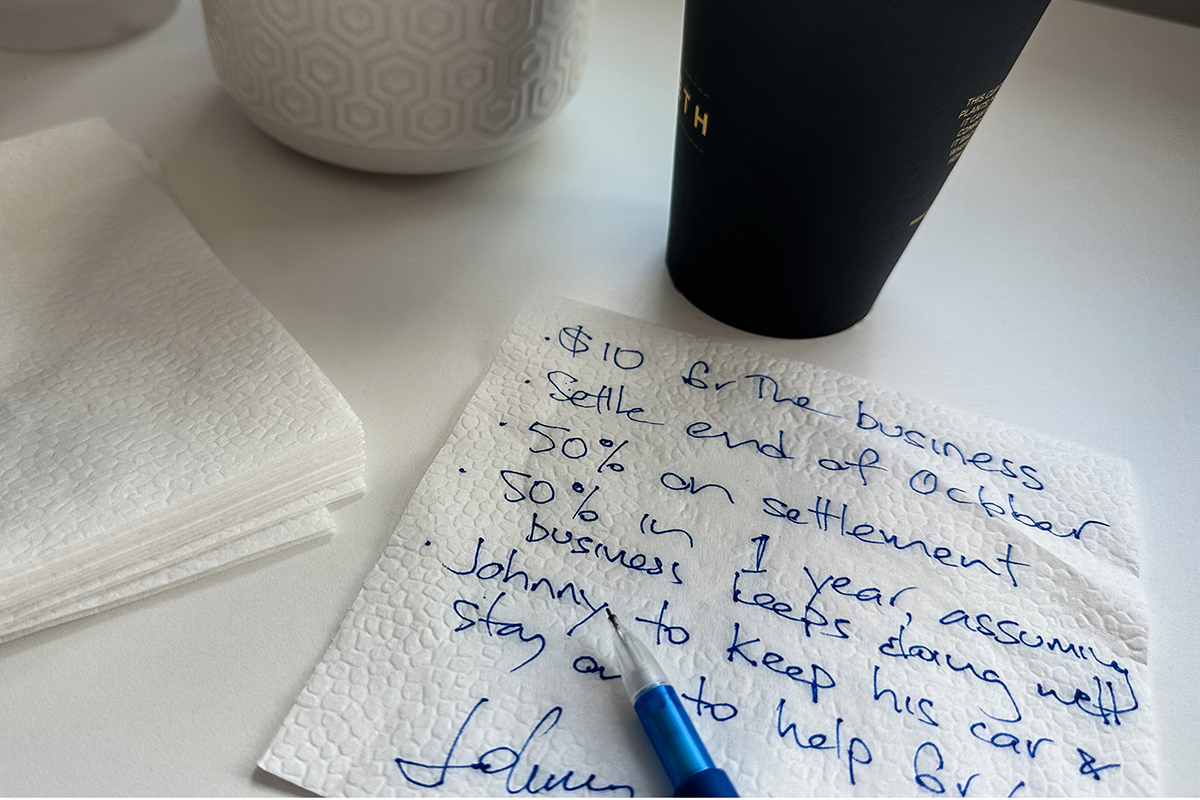 TH
THIS CU
PLANTS.
IT CA
COMP
• $10 for The business
• Settle end of October
• 50% on settlement
• 50% in 1 year, assuming
business keeps doing well
• Johnny to keep his car &
stay on to help for
Johnny